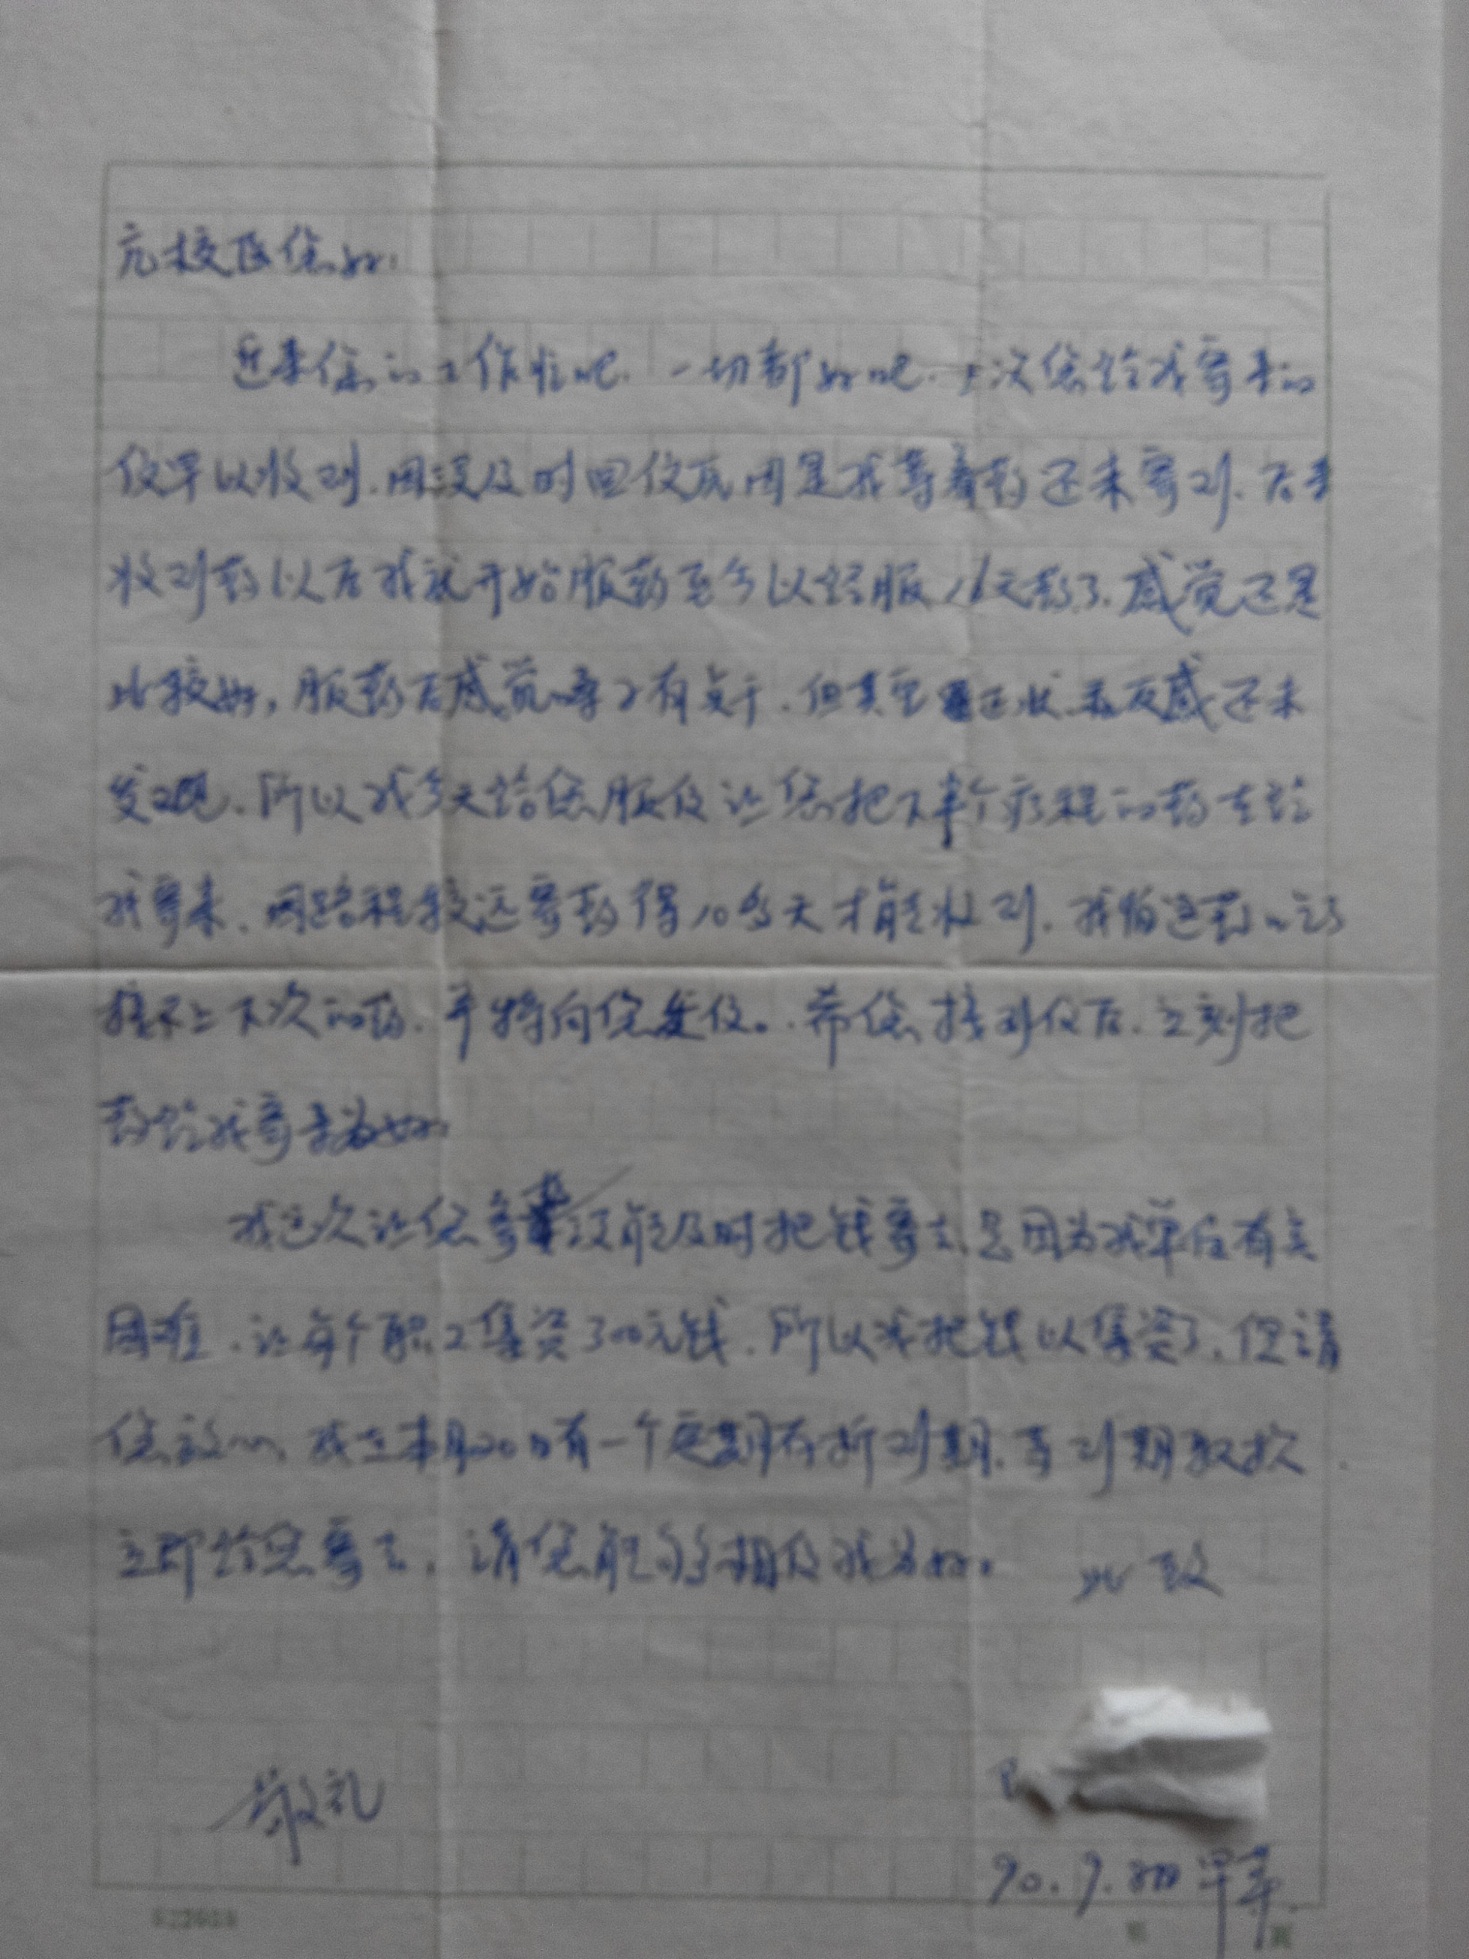 亢校医您好:
近来您的工作忙吧.一切都好吧.上次您给我寄来的
信早以收到.因没及时回信原因是我等着药还未寄到.后来
收到药以后我就开始服药至今以经服16天药了.感觉还是
比较好,服药后感觉嗓子有点干.但其它症状和反感还未
发现.所以我今天给您服信让您把下半个疗程的药在给
我寄来.因路程较远寄药得10多天才能收到.我怕这药吃了
接不上下次的药.并特向您发信。希您接到信后.立刻把
药给我寄来为好.
我这次让您寄药没能及时把钱寄去.是因为我单位有点
困难.让每个职工集资300元钱.所以我把钱以集资了.但请
您放心.我在本月20日有一个定期存折到期.等到期取款
立即给您寄去.请您能够相信我为好。 此致
敬礼
90.9. 早草